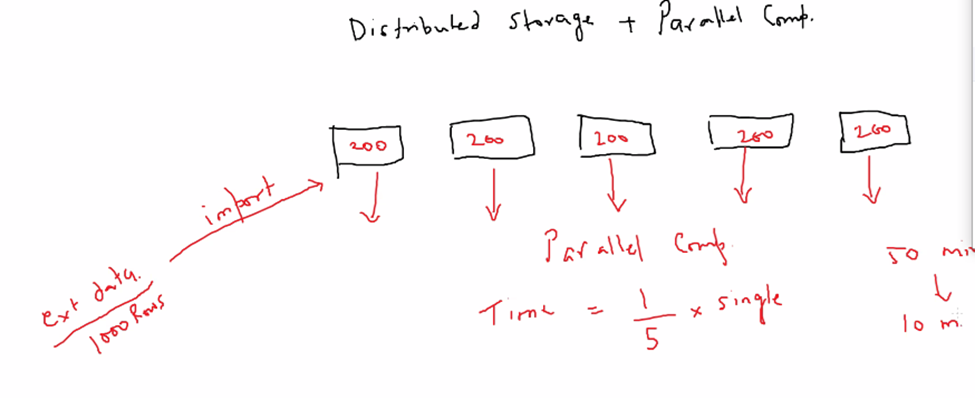 Distributed Storage + Parallel Comp.
200 200 200 200 200
import
ext data.
1000 Rows
Parallel Comp.
Time = 1/5 × single
50 min
10 m.